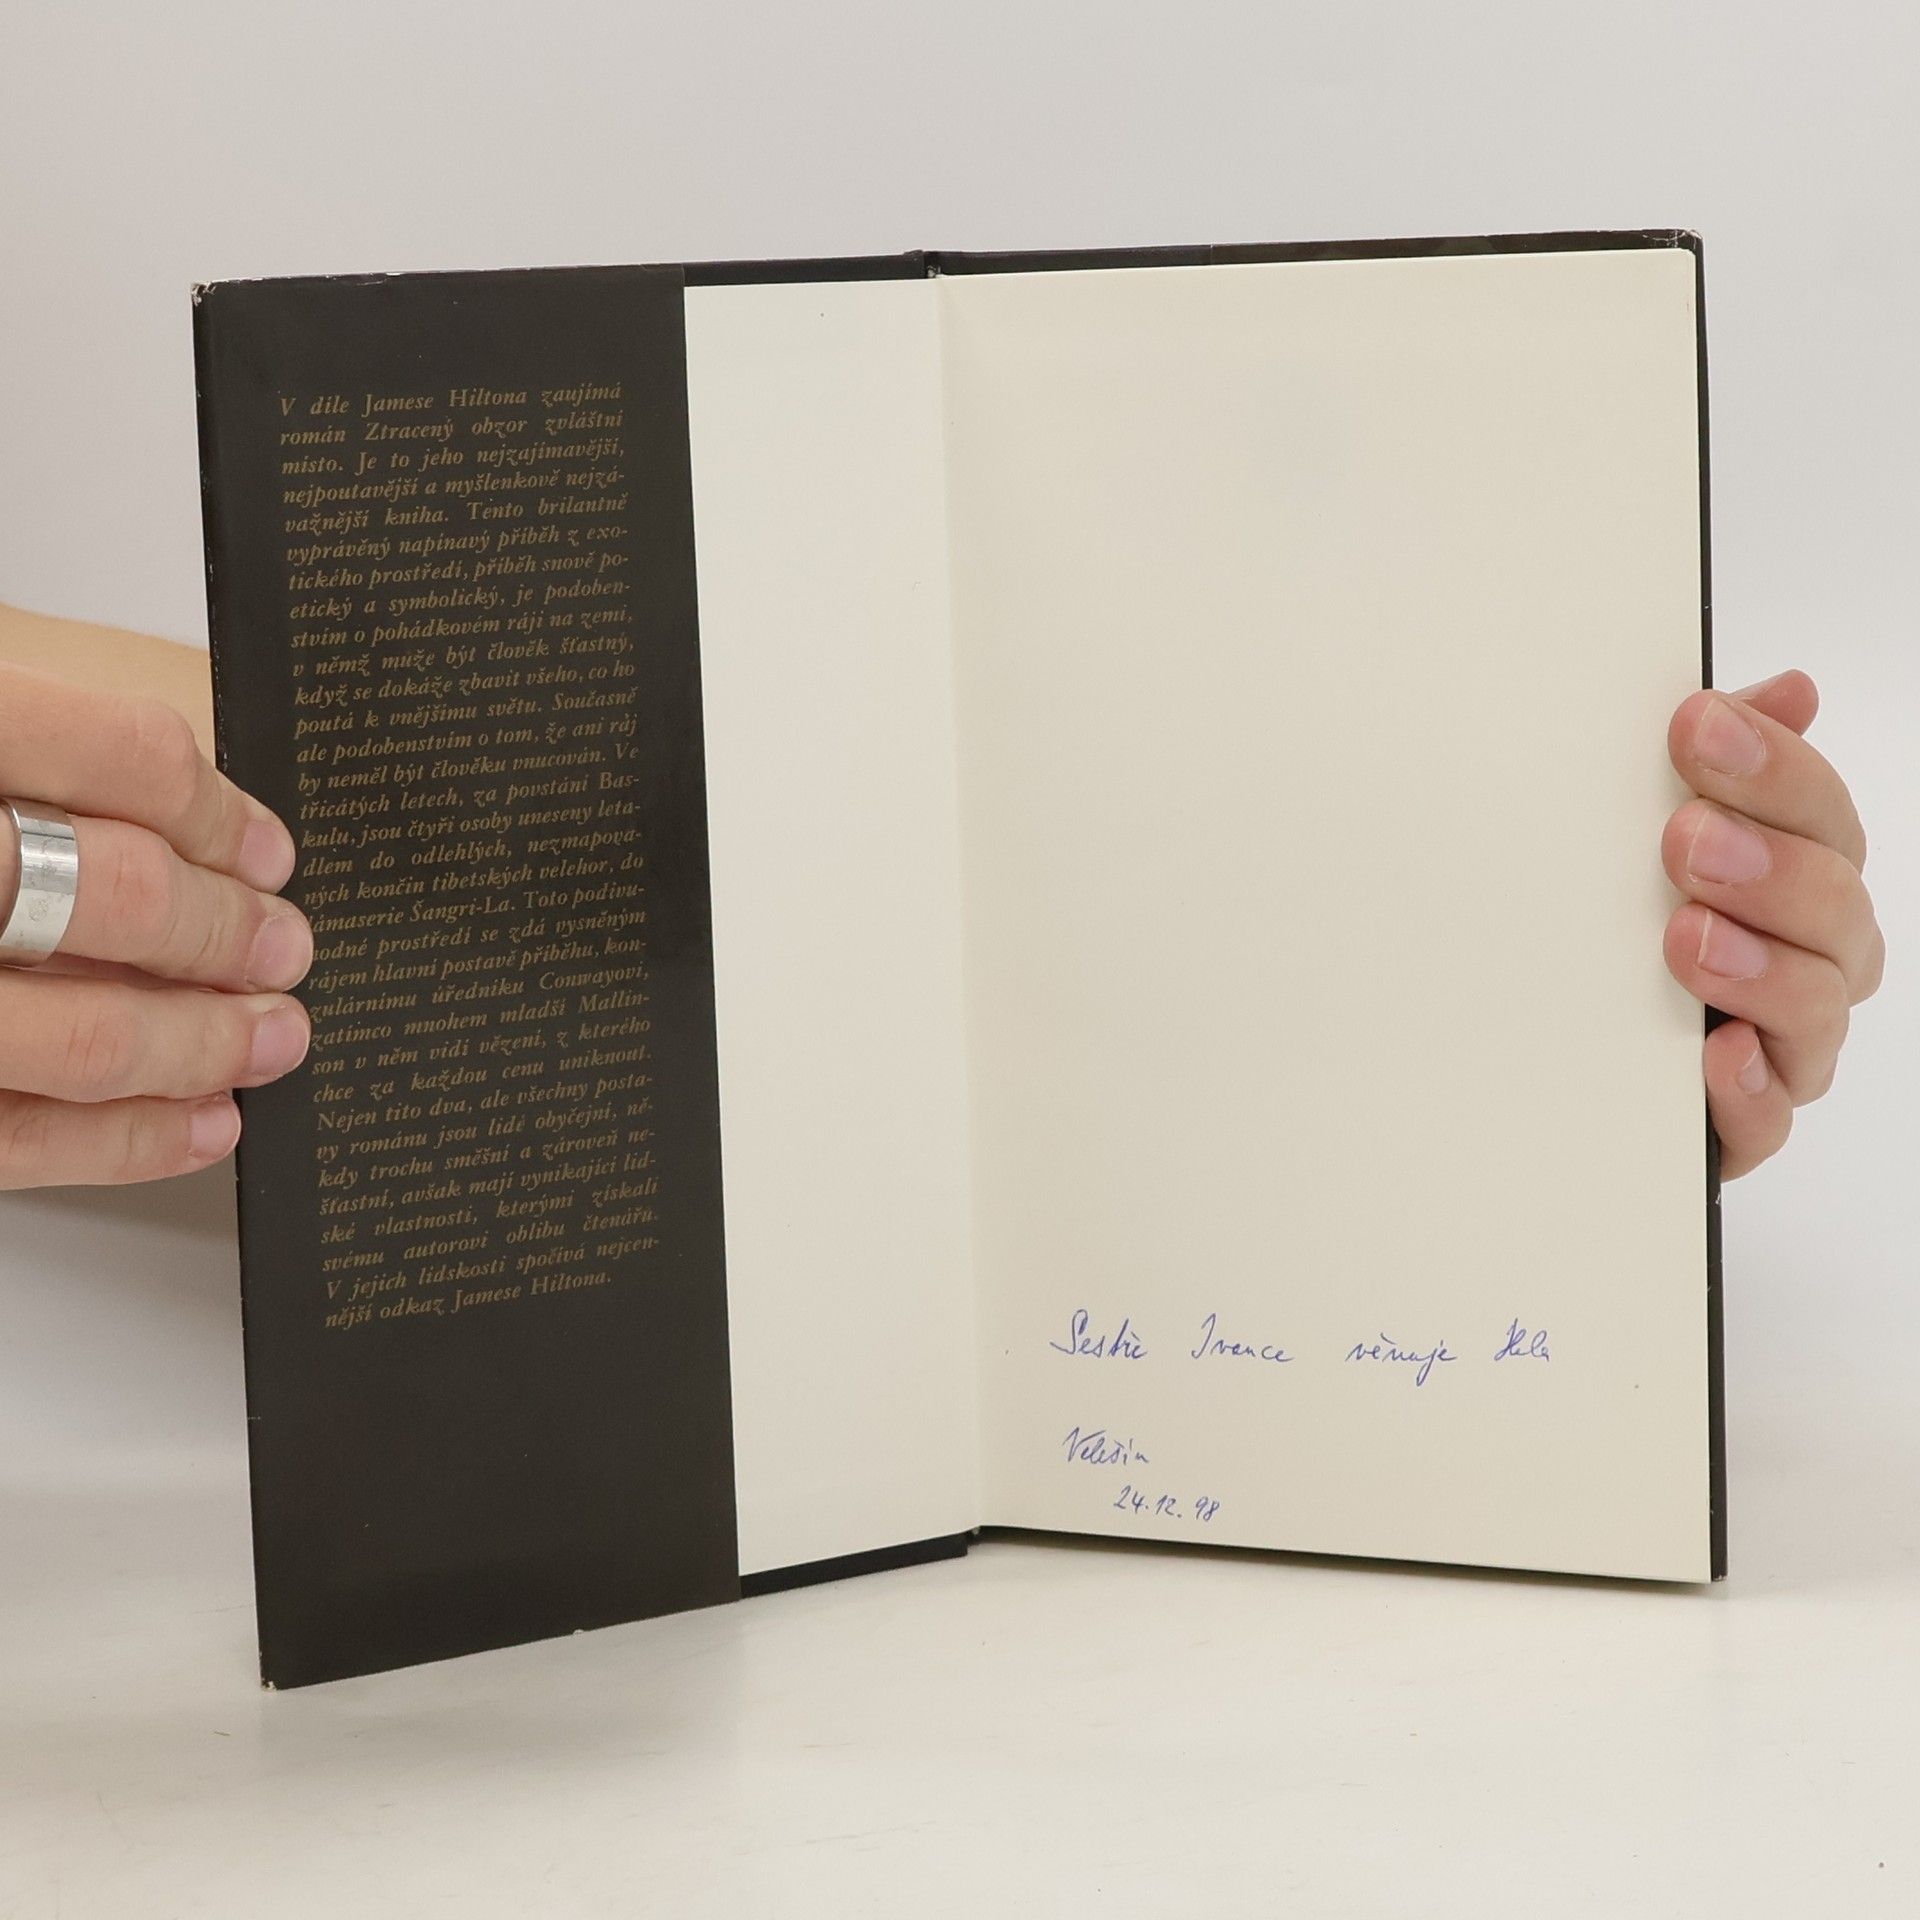 V díle Jamese Hiltona zaujímá
román Ztracený obzor zvláštní
místo. Je to jeho nejzajímavější,
nejpoutavější a myšlenkově nejzá-
važnější kniha. Tento brilantně
vyprávěný napínavý příběh z exo-
tického prostředí, příběh snově po-
etický a symbolický, je podoben-
stvím o pohádkovém ráji na zemi,
v němž může být člověk šťastný,
když se dokáže zbavit všeho, co ho
poutá k vnějšímu světu. Současně
ale podobenstvím o tom, že ani ráj
by neměl být člověku vnucován. Ve
třicátých letech, za povstání Bas-
kulu, jsou čtyři osoby uneseny leta-
dlem do odlehlých, nezmapova-
ných končin tibetských velehor, do
lámaserie Šangri-La. Toto podivu-
hodné prostředí se zdá vysněným
rájem hlavní postavě příběhu, kon-
zulárnímu úředníku Conwayovi,
zatímco mnohem mladší Mallin-
son v něm vidí vězení, z kterého
chce za každou cenu uniknout.
Nejen tito dva, ale všechny posta-
vy románu jsou lidé obyčejní, ně-
kdy trochu směšní a zároveň ne-
šťastní, avšak mají vynikající lid-
ské vlastnosti, kterými získali
svému autorovi oblibu čtenářů.
V jejich lidskosti spočívá nejcen-
nější odkaz Jamese Hiltona.
Sestře Ivance věnuje
Velešín
24.12.98